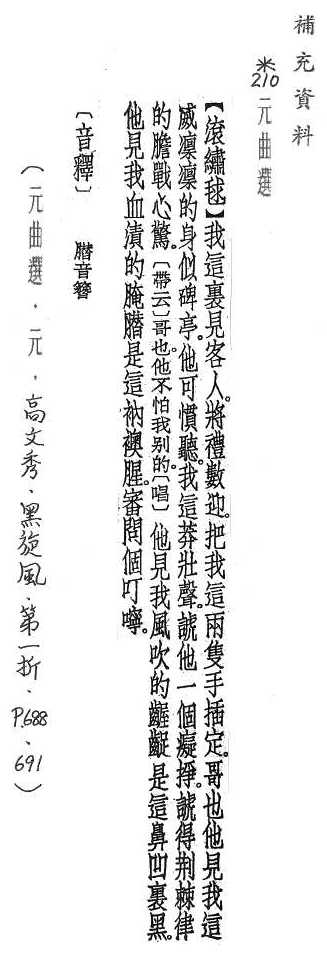 補充資料
※210元曲選
【滾繡毬】我這裏見客人。將禮數迎。把我這兩隻手插定。哥也他見我這
威凜凜的身似碑亭。他可慣聽。我這莽壯聲。諕他一個癡掙。諕得荆棘律
的膽戰心驚。〔帶云〕哥也他不怕我别的〔唱〕他見我風吹的齷齪是這鼻凹裏黑。
他見我血漬的腌臢是這衲襖腥。審問個叮嚀。
〔音釋〕 臢音簪
（元曲選．元．高文秀．黑旋風．第一折．P.688、691）